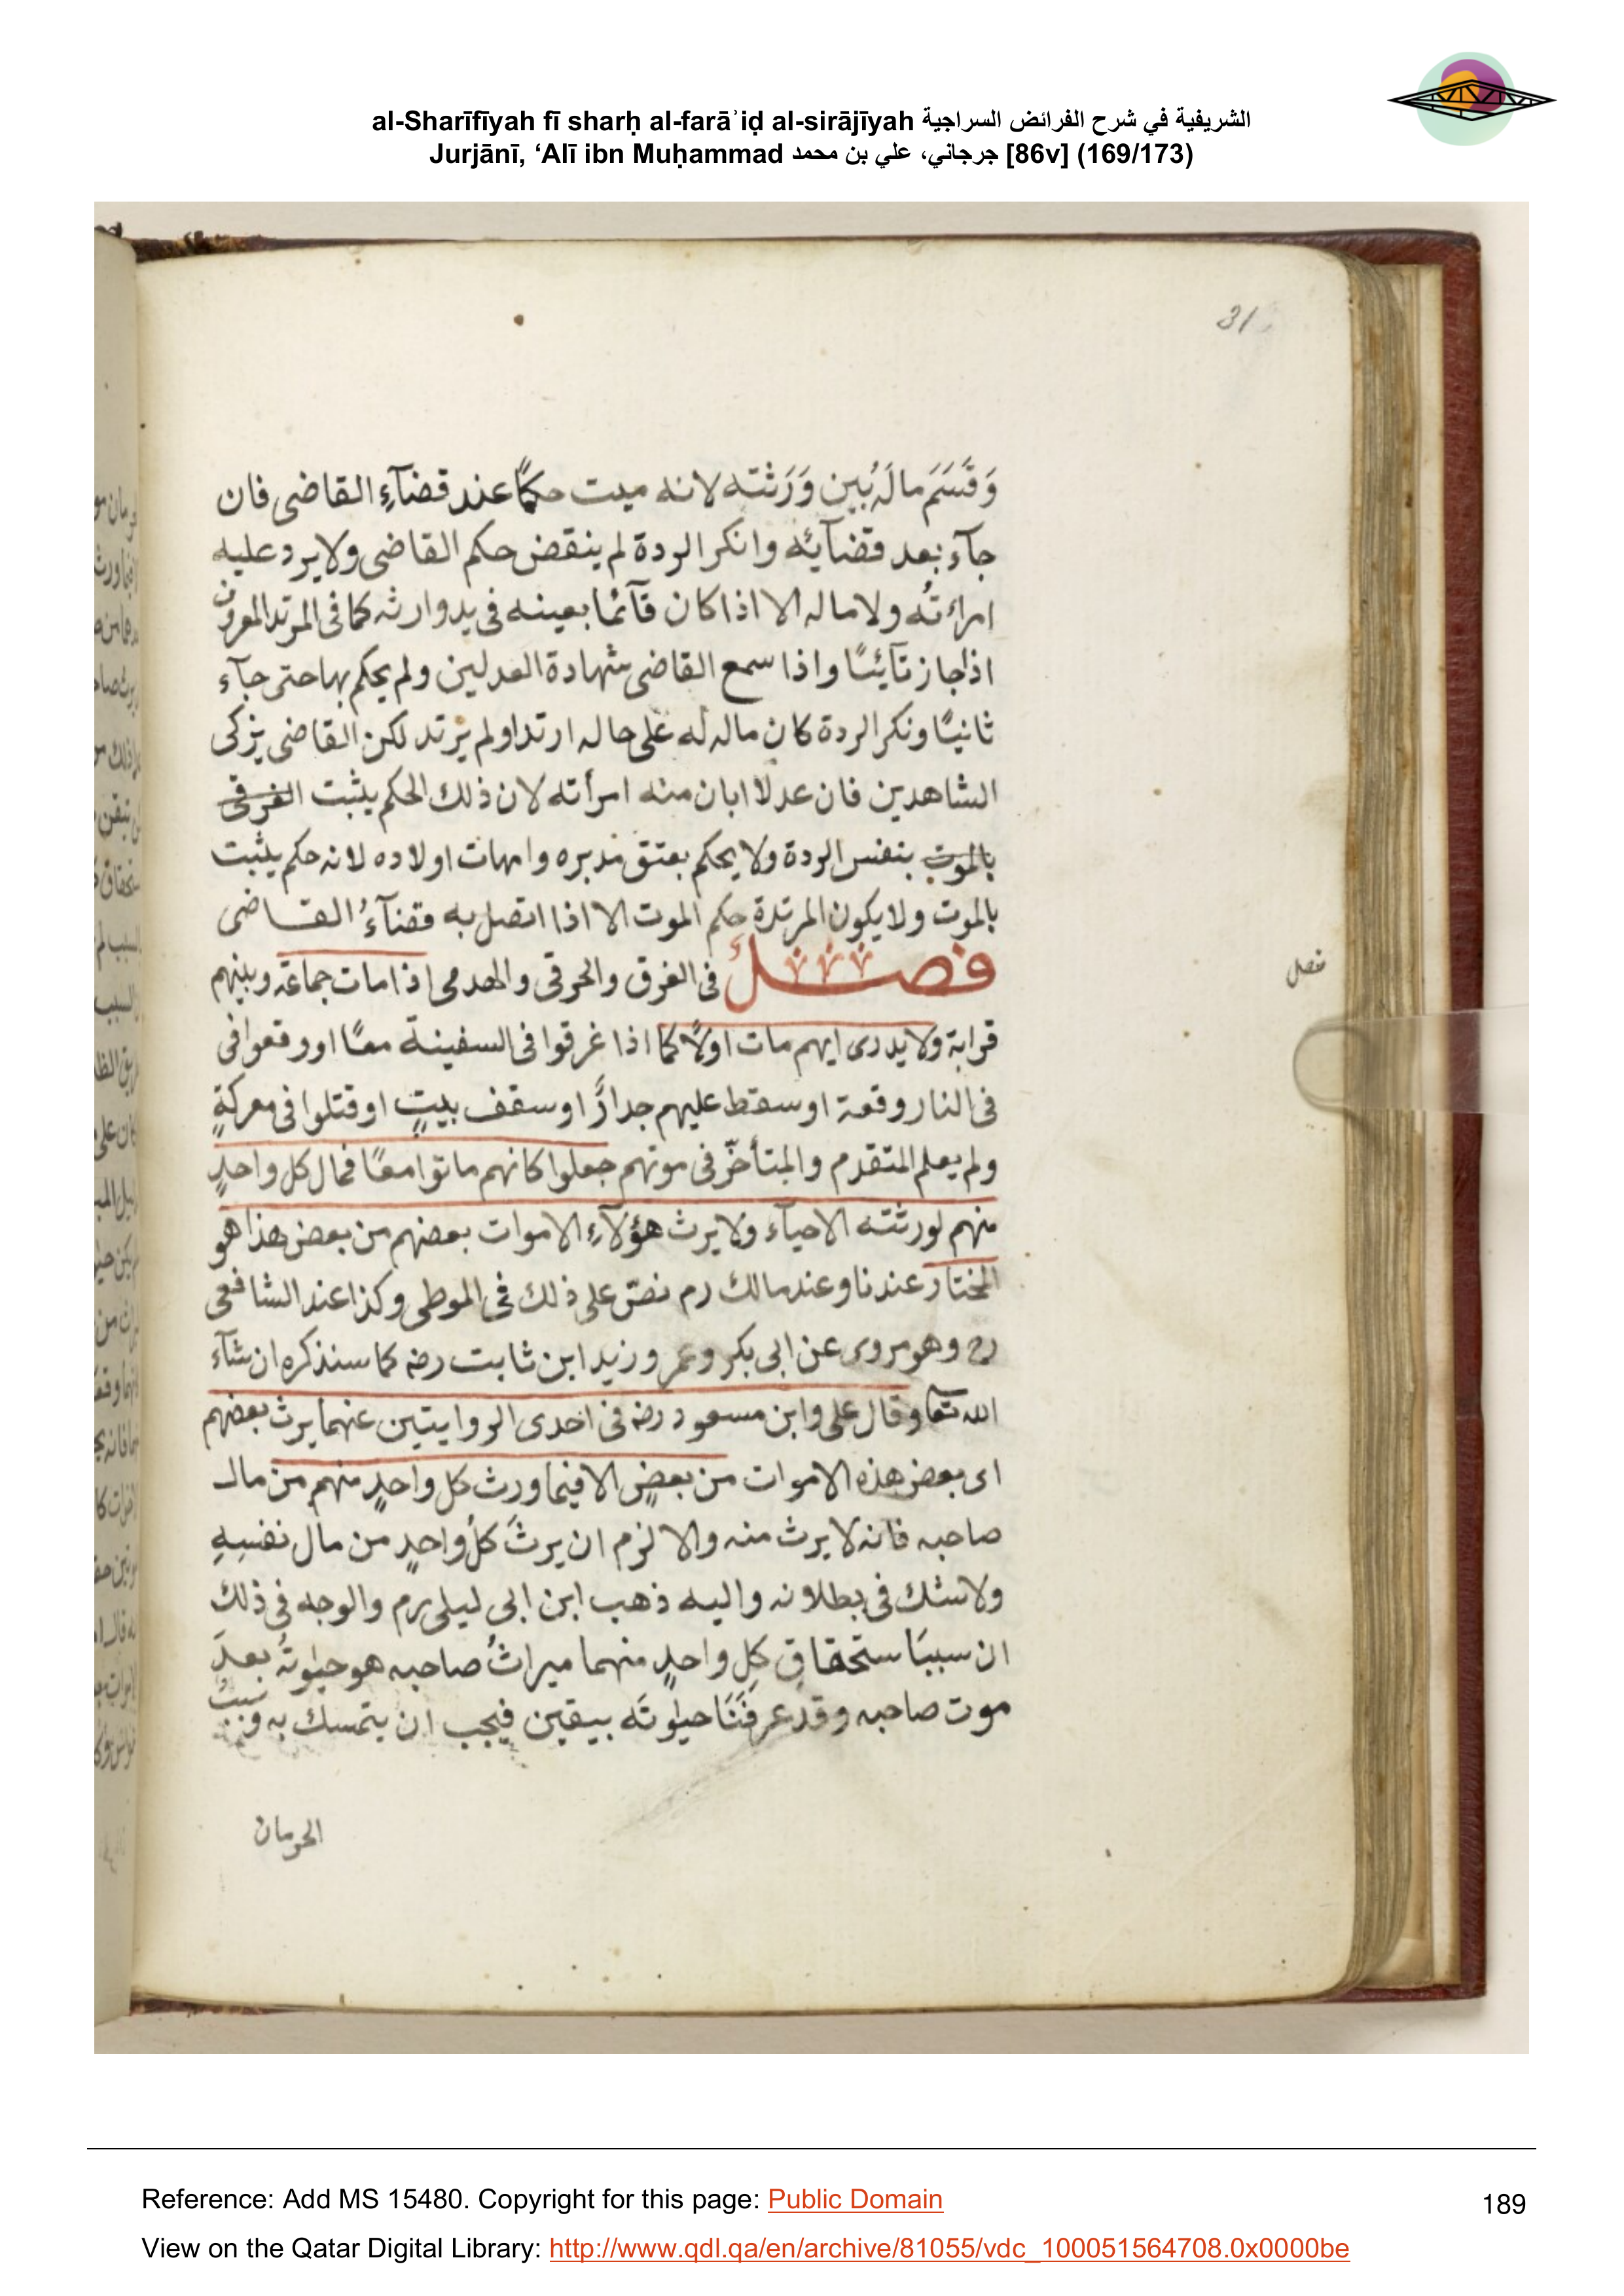 al-Sharīfīyah fī sharḥ al-farāʾiḍ al-sirājīyah الشريفية في شرح الفرائض السراجية
Jurjānī, ‘Alī ibn Muḥammad جرجاني، علي بن محمد [86v] (169/173)
31
وَقَسَمَ مالَهُ بين وَرَثته لانه ميت حكمًا عند قضآءِ القاضى فان
جآء بعد قضآئه وانكر الردة لم ينقض حكم القاضى ولا يرد عليه
امراءته ولا ماله الا اذا كان قآئما بعينه فى يد وارثه كما فى المرتد المعروف
اذا جاز تآئبًا واذا سمع القاضى شهادة العدلين ولم يحكم بها حتى جآء
ثانيًا ونكر الردة كان ماله له على حاله ارتد او لم يرتد لكن القاضى يزكى
الشاهدين فان عدلا ابان منه امرأته لان ذلك الحكم يثبت الفرقى
بالموت بنفس الردة ولا يحكم بعتق مدبره وامهات اولاده لانه حكم يثبت
بالموت ولا يكون المرتدة حكم الموت الا اذا اتصل به قضآءُ القاضى
فصل فى الغرق والحرقى والهدمى اذا مات جماعة وبينهم
فصل
قرابة ولا يدرى ايهم مات اولًا كما اذا غرقوا فى السفينة معًا او وقعوا فى
فى النار وقعة او سقط عليهم جدارٌ او سقف بيتٍ او قتلوا فى معركةٍ
ولم يعلم المتقدم والمتأخّر فى موتهم جعلوا كانهم ماتوا معًا فمال كل واحدٍ
منهم لورثته الاحيآء ولا يرث هؤلآءِ الاموات بعضهم من بعض هذا هو
المختار عندنا وعند مالك رم نصّ على ذلك فى الموطى وكذا عند الشافعى
رح وهو مروى عن ابى بكر وعمر وزيد ابن ثابت رضه كما سنذكره ان شآء
الله تعا وقال على وابن مسعود رضه فى احدى الروايتين عنهما يرث بعضهم
اى بعض هذه الاموات من بعضٍ الا فيما ورث كل واحدٍ منهم من مال
صاحبه فانه لا يرث منه والا لزم ان يرثَ كلُ واحدٍ من مال نفسِهِ
ولا شك فى بطلانه واليه ذهب ابن ابى ليلى رم والوجه فى ذلك
ان سببَ استحقاق كلِ واحدٍ منهما ميراثُ صاحبه هو حيٰوتهُ بعدَ
موت صاحبه وقد عرفَنَا حيٰوتَه بيقين فيجب ان يتمسك به وسببُ
الحرمان
Reference: Add MS 15480. Copyright for this page: Public Domain
189
View on the Qatar Digital Library: http://www.qdl.qa/en/archive/81055/vdc_100051564708.0x0000be